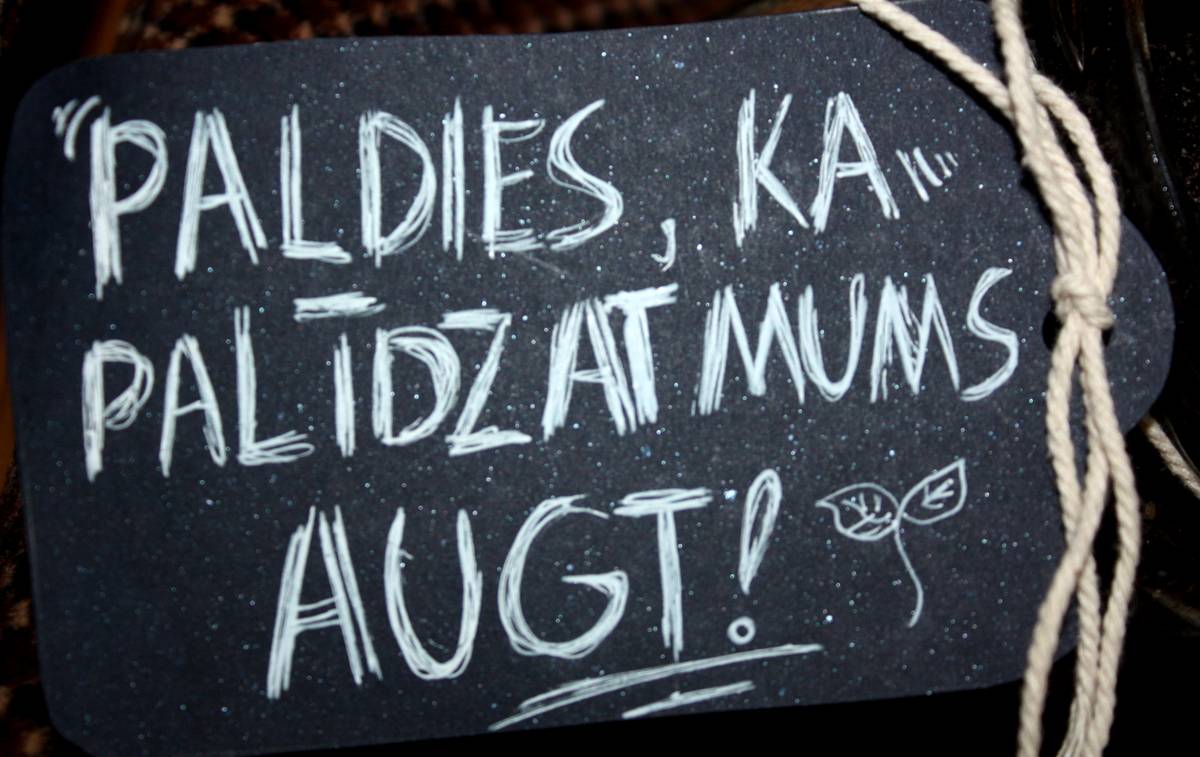 PALDIES, KA
PALĪDZAT MUMS
AUGT!